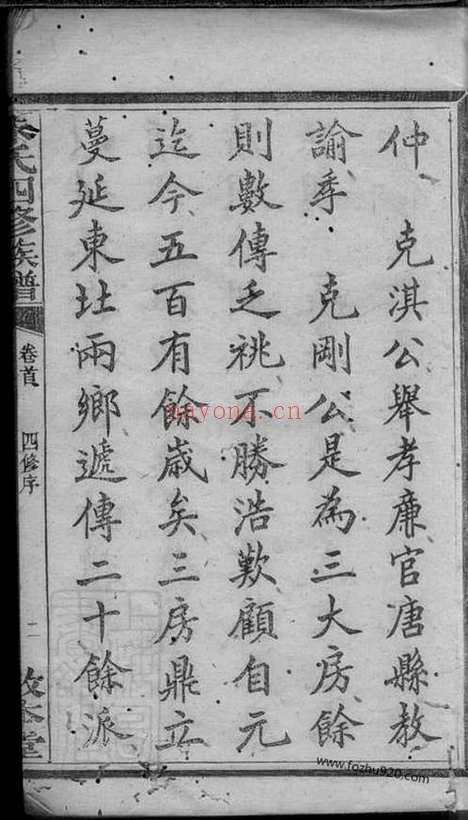 仲 克淇公舉孝廉官唐縣教
諭季 克剛公是為三大房餘
則數傳乏祧不勝浩歎顧自元
迄今五百有餘歲矣三房鼎立
蔓延東北兩鄉遞傳二十餘派
氏四修族譜
卷首 四修序
二
本堂
nayona.cn
www.fozhu920.com